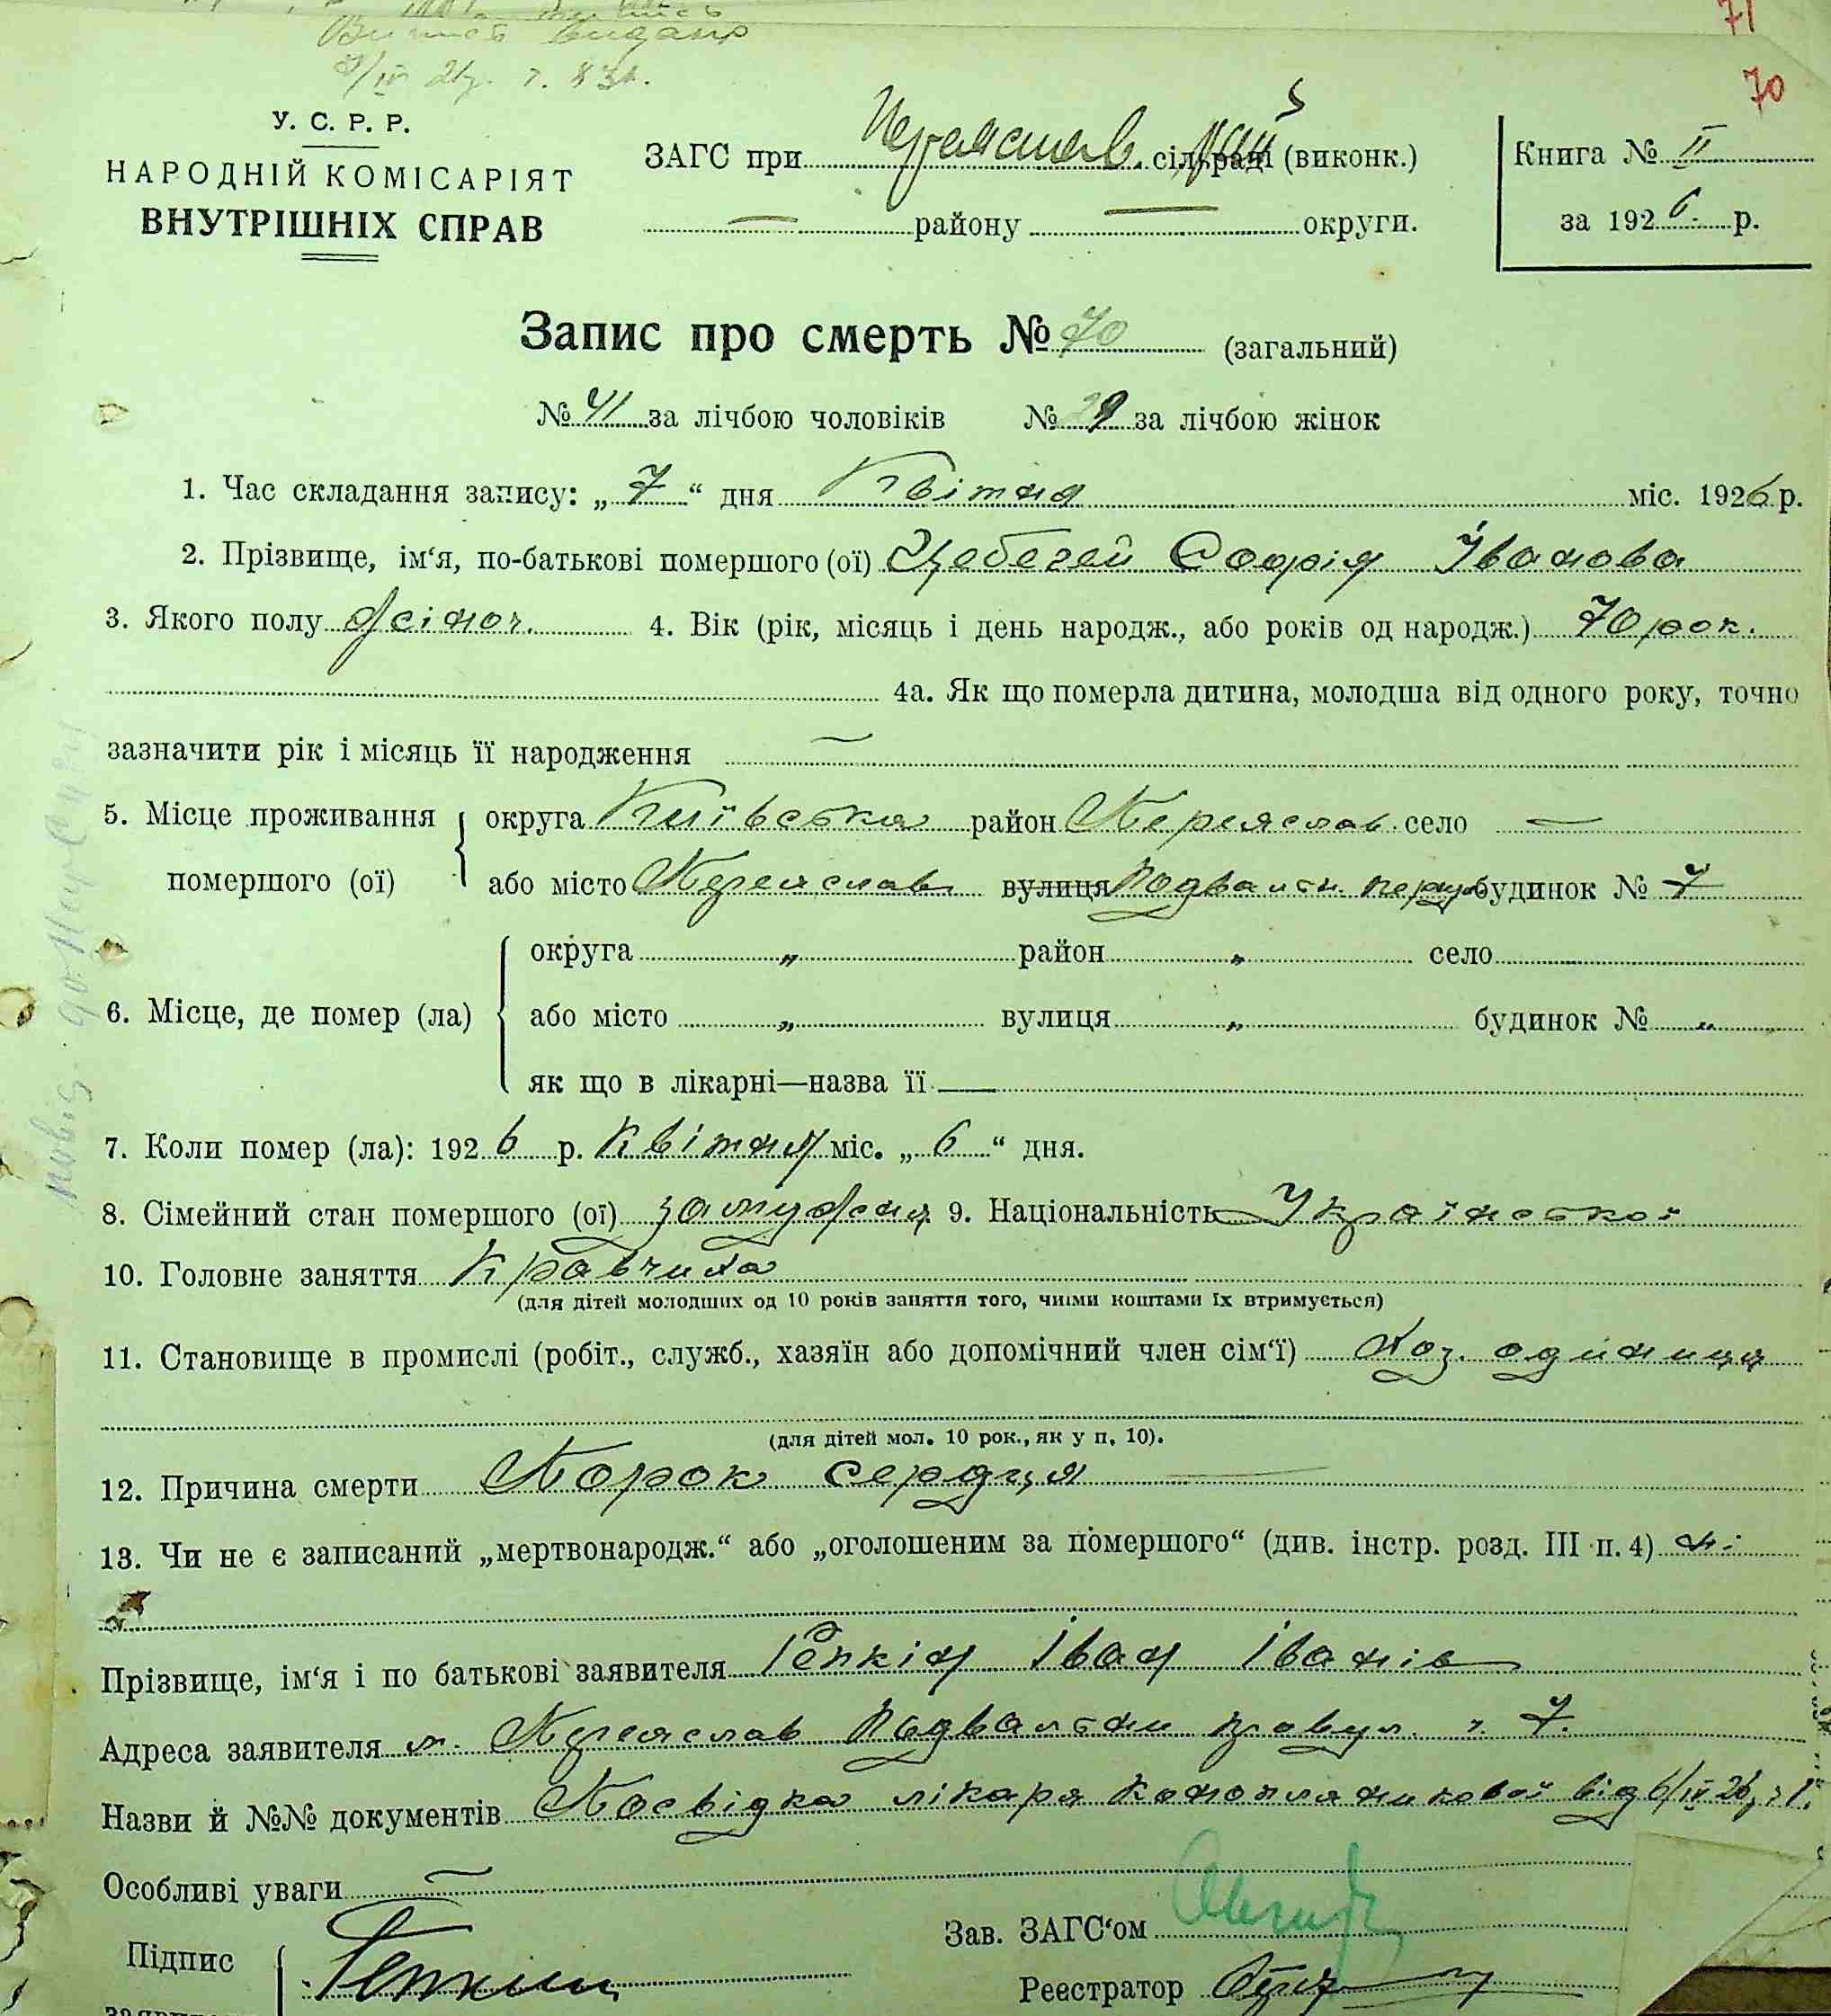 71
Виписъ видано
70
У. С. Р. Р.
НАРОДНІЙ КОМІСАРІЯТ
ВНУТРІШНІХ СПРАВ
ЗАГС при Переяслав. рай сільраді (виконк.)
— району — округи.
Книга № II
за 1926 р.
Запис про смерть № 70 (загальний)
№ 41 за лічбою чоловіків № 29 за лічбою жінок
1. Час складання запису: „ 7 “ дня Квітня міс. 1926 р.
2. Прізвище, ім‘я, по-батькові помершого (ої) Цебегей Софія Іванова
3. Якого полу жіноч. 4. Вік (рік, місяць і день народж., або років од народж.) 70 рок.
4а. Як що померла дитина, молодша від одного року, точно
зазначити рік і місяць її народження —
5. Місце проживання помершого (ої) округа Київська район Переяслав. село —
або місто Переяслав вулиця Подвальн. переул будинок № 7
6. Місце, де помер (ла) округа „ район „ село
або місто „ вулиця „ будинок № „
як що в лікарні—назва її —
7. Коли помер (ла): 1926 р. Квітня міс. „ 6 “ дня.
8. Сімейний стан помершого (ої) замужня 9. Національність Української
10. Головне заняття Кравчиха
(для дітей молодших од 10 років заняття того, чиїми коштами їх втримується)
11. Становище в промислі (робіт., служб., хазяїн або допомічний член сім‘ї) Хоз. одиниця
(для дітей мол. 10 рок., як у п. 10).
12. Причина смерти Порок сердця
13. Чи не є записаний „мертвонародж.“ або „оголошеним за помершого“ (див. інстр. розд. III п. 4) ні
Прізвище, ім‘я і по батькові заявителя Генкін Іван Іванів
Адреса заявителя м. Переяслав Подвальни провул. ч. 7.
Назви й №№ документів Посвідка лікаря Коноплянікової від 6/IV 26, ч 1.
Особливі уваги —
Зав. ЗАГС‘ом
Підпис
Генкин
Реєстратор